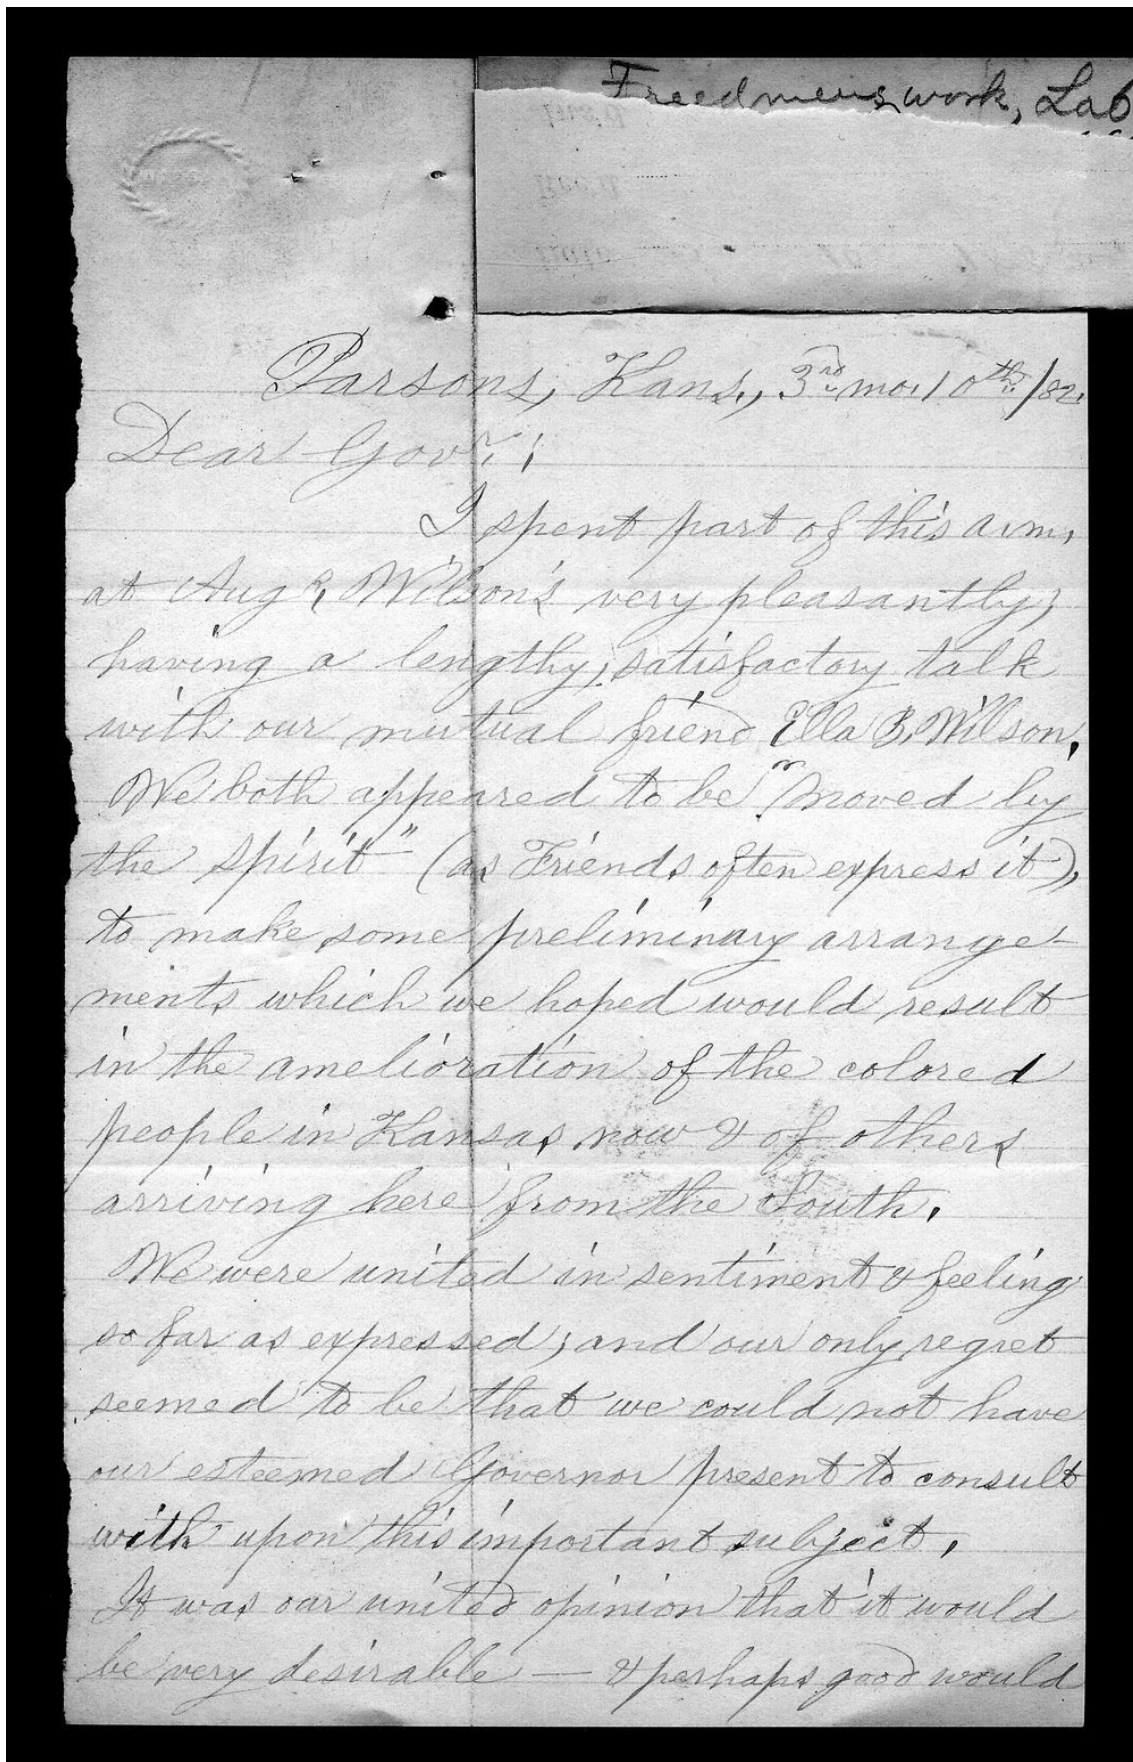 Freedmens work, Lab
Parsons, Kans., 3rd mo. 10th/82.
Dear Gov'r.;
I spent part of this a.m.
at Aug. Wilson's very pleasantly;
having a lengthy, satisfactory talk
with our mutual friend Ella B. Wilson.
We both appeared to be "moved by
the spirit" (as Friends often express it),
to make some preliminary arrange-
ments which we hoped would result
in the amelioration of the colored
people in Kansas now & of others
arriving here from the South.
We were united in sentiment & feeling
so far as expressed; and our only regret
seemed to be that we could not have
our esteemed Governor present to consult
with upon this important subject.
It was our united opinion that it would
be very desirable — & perhaps good would